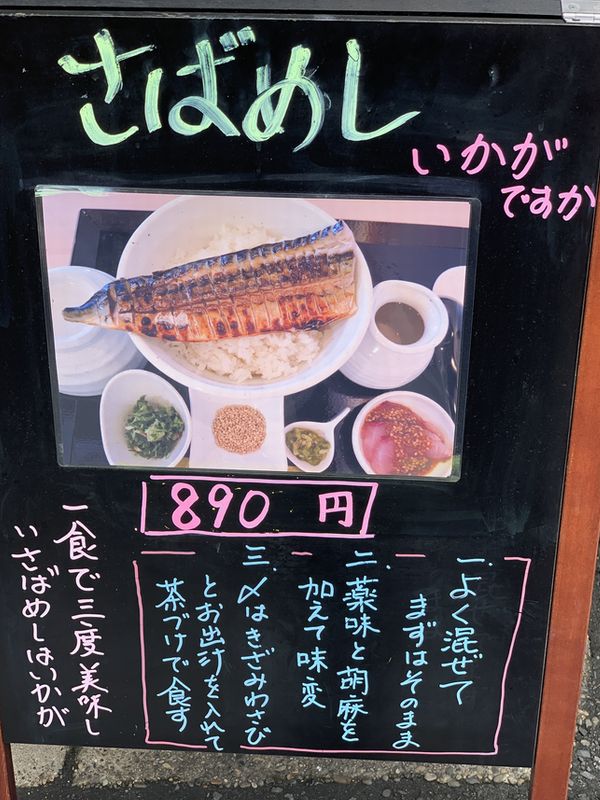 さばめし
いかが
ですか
890 円
一.よく混ぜて
まずはそのまま
二.薬味と胡麻を
加えて味変
三.〆はきざみわさび
とお出汁を入れて
茶づけで食す
一食で三度美味し
いさばめしはいかが